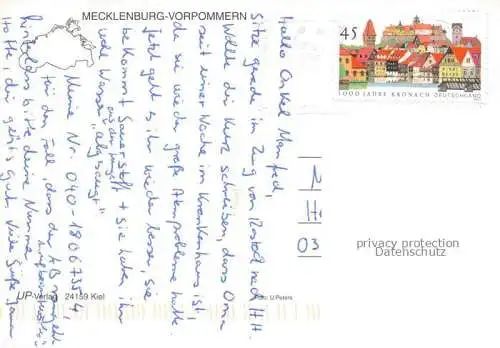 MECKLENBURG-VORPOMMERN
45
1000 JAHRE KRONACH DEUTSCHLAND
Hallo Onkel Manfred,
Sitze grade im Zug von Rostock nach HH.
Wollte dir kurz schreiben, dass Oma
seit einer Woche im Krankenhaus ist,
da sie wieder große Atemprobleme hatte.
Jetzt geht es ihr wieder besser, sie
bekommt Sauerstoff + sie haben ihr
viel Wasser aus der Lunge "abgesaugt"
Meine Nr. 040-18067334,
für den Fall, dass der AB mal geht
bitte deine Nummer.
Hoffe, dir geht's gut. Viele Grüße
2
H
03
privacy protection
Datenschutz
UP-Verlag 24159 Kiel
Foto: U.Peters